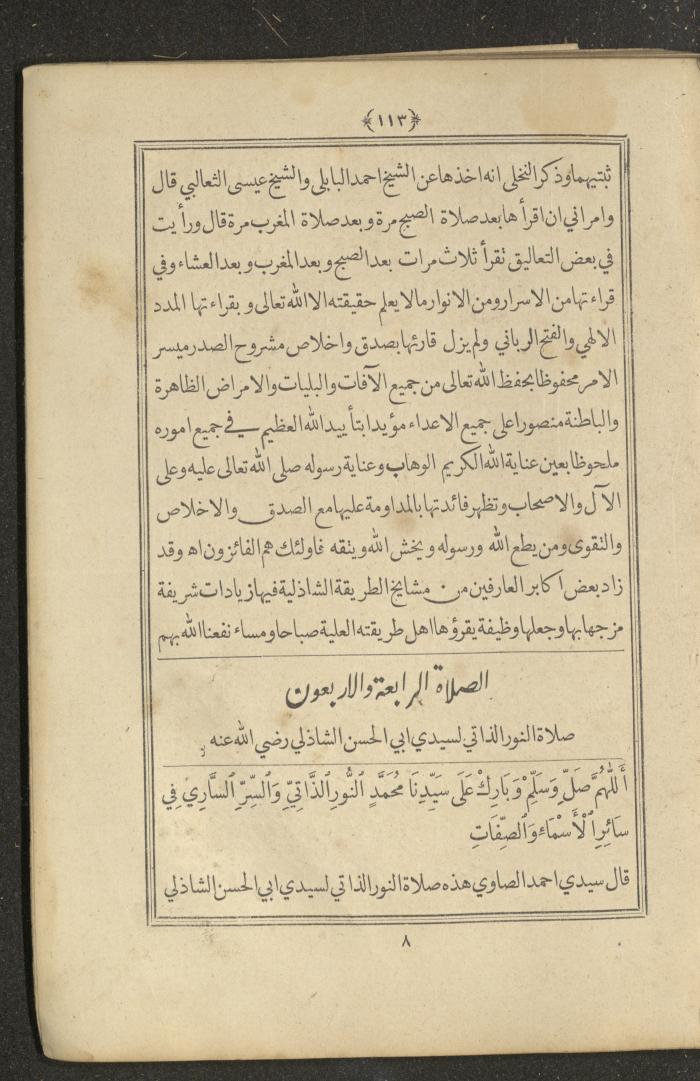 ﴿١١٣﴾
ثبتيهما وذكر النخلى انه اخذها عن الشيخ احمد البابلى والشيخ عيسى الثعالبي قال
وامراني ان اقرأها بعد صلاة الصبح مرة وبعد صلاة المغرب مرة قال ورأيت
في بعض التعاليق تقرأ ثلاث مرات بعد الصبح وبعد المغرب وبعد العشاء وفي
قراءتها من الاسرار ومن الانوار مالا يعلم حقيقته الا الله تعالى وبقراءتها المدد
الالهي والفتح الرباني ولم يزل قارئها بصدق واخلاص مشروح الصدر ميسر
الامر محفوظا بحفظ الله تعالى من جميع الآفات والبليات والامراض الظاهرة
والباطنة منصورا على جميع الاعداء مؤيدا بتأييد الله العظيم في جميع اموره
ملحوظا بعين عناية الله الكريم الوهاب وعناية رسوله صلى الله تعالى عليه وعلى
الآل والاصحاب وتظهر فائدتها بالمداومة عليها مع الصدق والاخلاص
والتقوى ومن يطع الله ورسوله ويخش الله ويتقه فاولئك هم الفائزون اه وقد
زاد بعض اكابر العارفين من مشايخ الطريقة الشاذلية فيها زيادات شريفة
مزجها بها وجعلها وظيفة يقرؤها اهل طريقته العلية صباحا ومساء نفعنا الله بهم
الصلاة الرابعة والاربعون
صلاة النور الذاتي لسيدي ابي الحسن الشاذلي رضي الله عنه
أَللّٰهُمَّ صَلِّ وَسَلِّمْ وَبَارِكْ عَلَى سَيِّدِنَا مُحَمَّدٍ ٱلنُّورِ ٱلذَّاتِيِّ وَٱلسِّرِّ ٱلسَّارِي فِي
سَائِرِ ٱلْأَسْمَاءِ وَٱلصِّفَاتِ
قال سيدي احمد الصاوي هذه صلاة النور الذاتي لسيدي ابي الحسن الشاذلي
٨